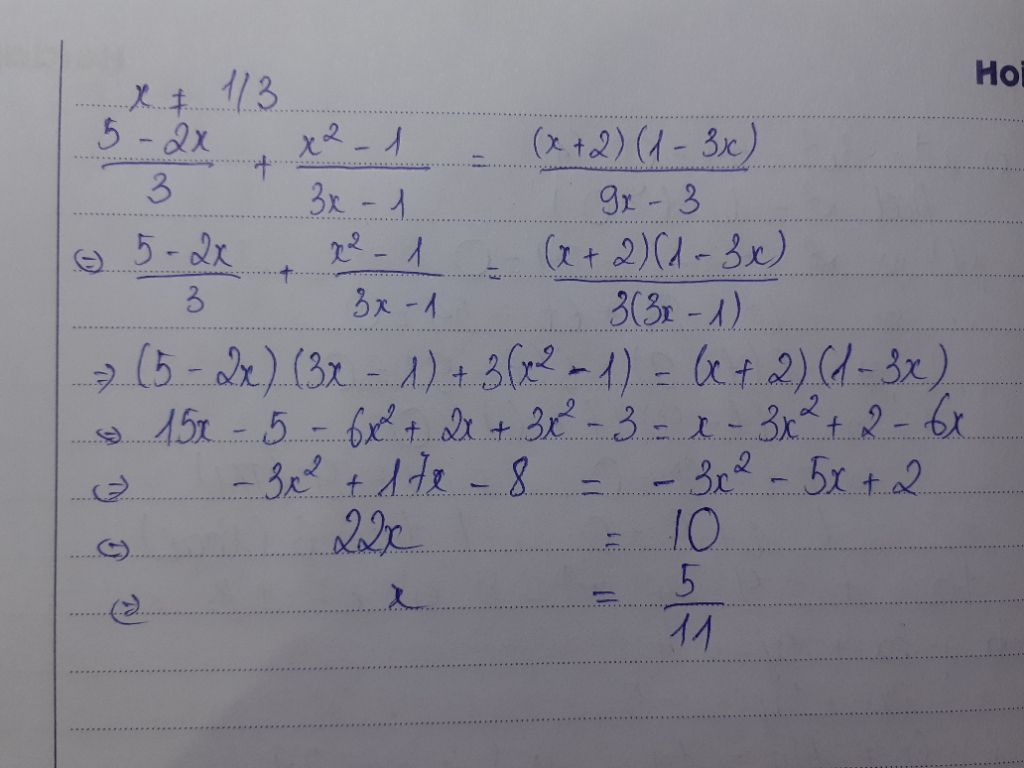 Hoi
x ≠ 1/3
(5 - 2x)/3 + (x² - 1)/(3x - 1) = (x + 2)(1 - 3x)/(9x - 3)
⇔ (5 - 2x)/3 + (x² - 1)/(3x - 1) = (x + 2)(1 - 3x)/3(3x - 1)
⇒ (5 - 2x)(3x - 1) + 3(x² - 1) = (x + 2)(1 - 3x)
⇔ 15x - 5 - 6x² + 2x + 3x² - 3 = x - 3x² + 2 - 6x
⇔ - 3x² + 17x - 8 = - 3x² - 5x + 2
⇔ 22x = 10
⇔ x = 5/11